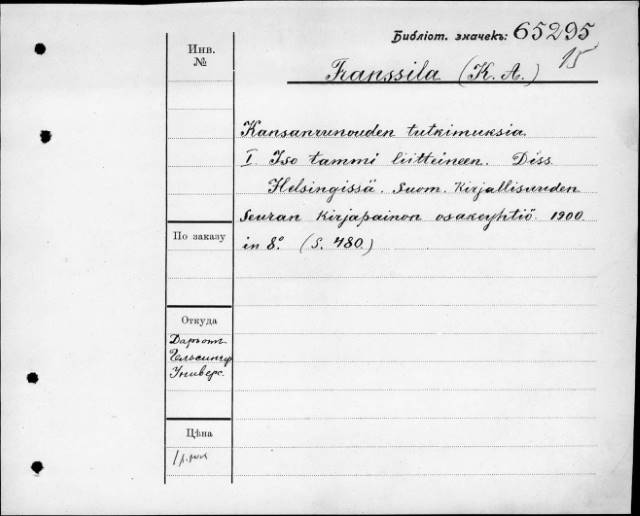 Библіот. значекъ: 65295
15
Инв.
№
Franssila (K. A.)
Kansanrunouden tutkimuksia.
I. Iso tammi liitteineen. Diss.
Helsingissä. Suom. Kirjallisuuden
Seuran Kirjapainon osakeyhtiö. 1900.
in 8°. (S. 480.)
По заказу
Откуда
Даръ отъ
Гельсингф
Универс.
Цѣна